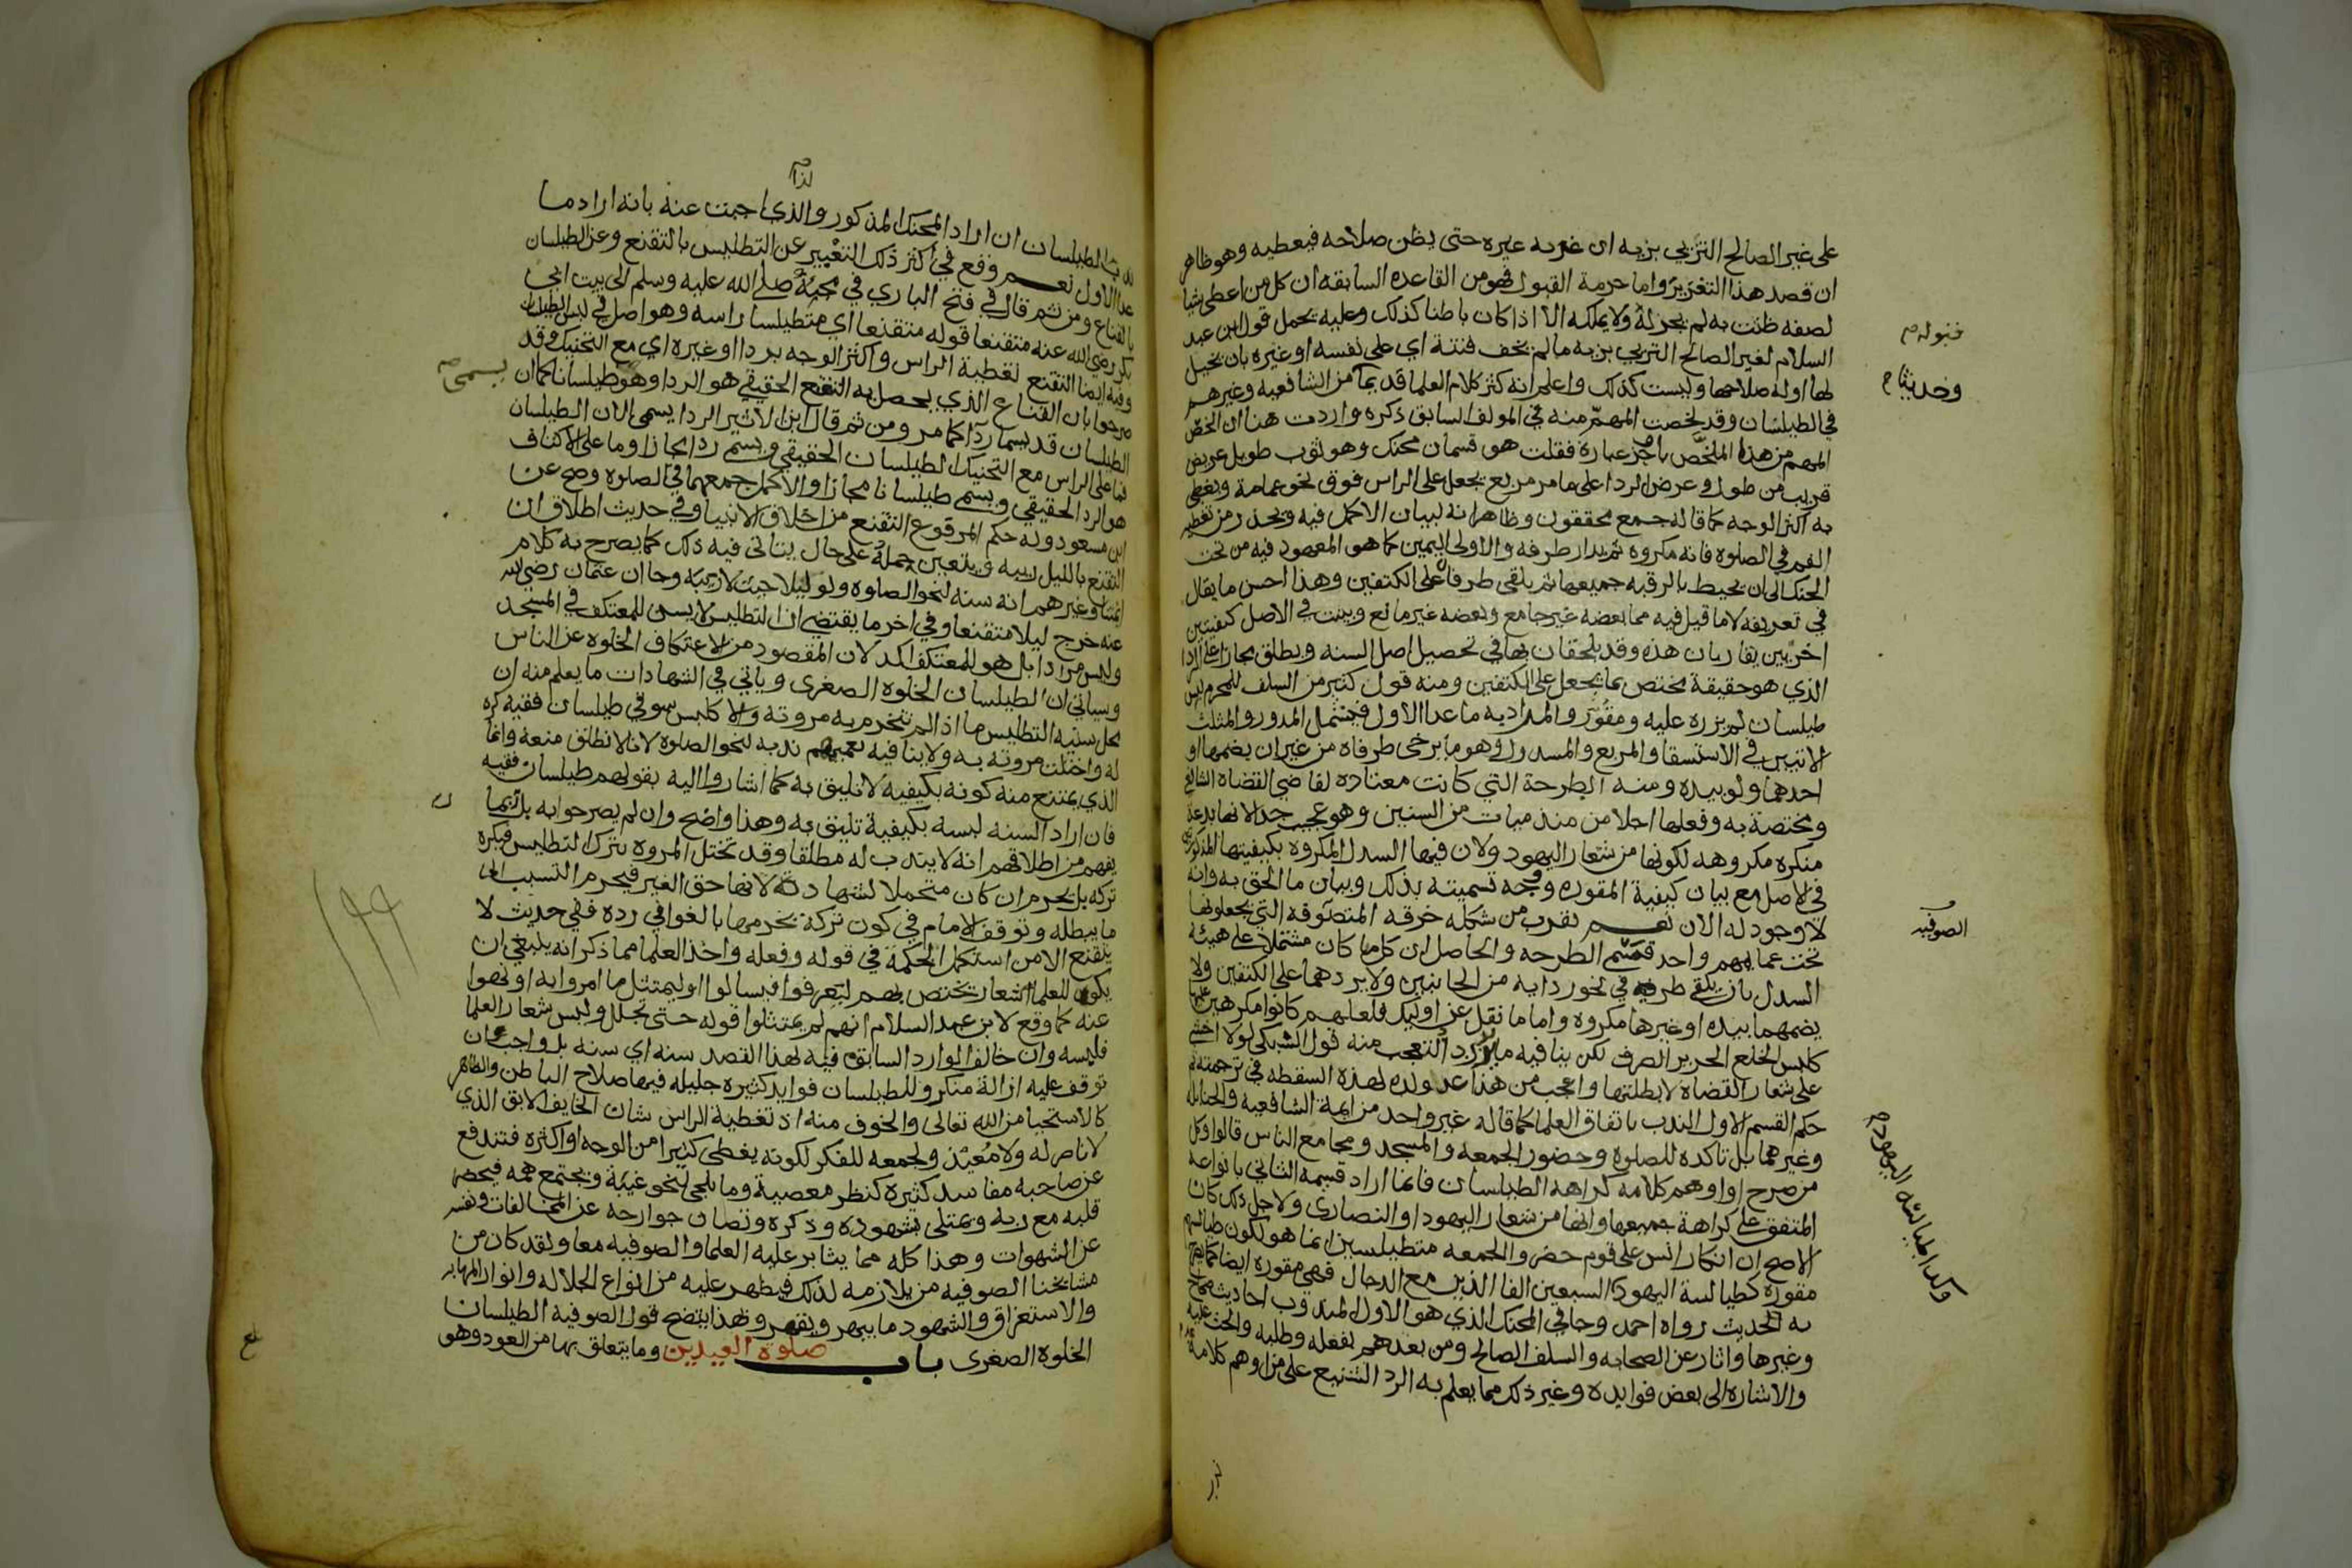 على غير الصالح التزيي بزيه ان غر به غيره حتى يظن صلاحه فيعطيه وهو ظاهر
ان قصد هذا التغرير واما حرمة القبول فهو من القاعده السابقه ان كل من اعطي شيا
لصفه ظنت به لم يجز له ولا يملكه الا اذا كان باطنا كذلك وعليه يحمل قول ابن عبد
السلام لغير الصالح التزيي بزيه ما لم يخف فتنة اي على نفسه او غيره بان يخيل
لها او له صلاحها وليست كذلك واعلم انه كثر كلام العلما قديما من الشافعيه وغيرهم
في الطيلسان وقد لخصت المهم منه في المولف السابق ذكره واردت هنا ان الخص
المهم من هذا الملخص باوجز عبارة فقلت هو قسمان محنك وهو ثوب طويل عريض
قريب من طول وعرض الردا على ما مر مربع يجعل على الراس فوق نحو عمامة ويغطي
به اكثر الوجه كما قاله جمع محققون وظاهر انه لبيان الاكمل فيه ويحذر من تغطية
الفم في الصلوه فانه مكروه ثم يدار طرفه والاولى اليمين كما هو المعهود فيه من تحت
الحنك الى ان يحيط بالرقبه جميعها ثم يلقى طرفاه على الكتفين وهذا احسن ما يقال
في تعريفه لا ما قيل فيه مما بعضه غير جامع وبعضه غير مانع وبينت في الاصل كيفيتين
اخريين يقاربان هذه وقد يلحقان بها في تحصيل اصل السنه ويطلق مجازا على الردا
الذي هو حقيقة مختص بما يجعل على الكتفين ومنه قول كثير من السلف للمحرم لبس
طيلسان لم يزره عليه ومقور والمراد به ما عدا الاول فيشمل المدور والمثلث
الاتيين في الاستسقا والمربع والمسدول وهو ما يرخى طرفاه من غير ان يضمهما او
احدهما ولو بيده ومنه الطرحة التي كانت معتاده لقاضي القضاه الشافعي
ومختصة به وفعلها اجلا من منذ ميات من السنين وهو عجيب جدا لانها بدعة
منكره مكروهه لكونها من شعار اليهود ولان فيها السدل المكروه بكيفيتها المذكوره
في الاصل مع بيان كيفية المقوره ووجه تسميته بذلك وبيان ما الحق به وانه
لا وجود له الان نعم يقرب من شكله خرقه المتصوفه التي يجعلونها
تحت عمايمهم واحد قسمي الطرحه والحاصل ان كل ما كان مشتملا على هيئة
السدل بان يلقى طرفيه في نحو ردايه من الجانبين ولا يردهما على الكتفين ولا
يضمهما بيده او غيرها مكروه واما ما نقل عن اوليك فلعلهم كانوا مكرهين عليها
كلبس الخلع الحرير الصرف لكن ينافيه ما يزيد التعجب منه قول السبكي لولا اخشى
على شعار القضاه لابطلتها واعجب من هذا عد ولده لهذه السقطه في ترجمته
حكم القسم الاول الندب باتفاق العلما كما قاله غير واحد من ايمة الشافعيه والحنابله
وغيرهما بل تاكده للصلوه وحضور الجمعه والمسجد ومجامع الناس قالوا وكل
من صرح او اوهم كلامه كراهه الطيلسان فانما اراد قسيمه الثاني بانواعه
المتفق على كراهة جميعها وانها من شعار اليهود او النصارى ولاجل ذلك كان
الاصح ان انكار انس على قوم حضر والجمعه متطيلسين انما هو لكون طيالسهم
مقوره كطيالسة اليهود السبعين الفا الذين مع الدجال فهي مقوره ايضا كما صرح
به الحديث رواه احمد وجا في المحنك الذي هو الاول المندوب احاديث صحاح
وغيرها واثار عن الصحابه والسلف الصالح ومن بعدهم بفعله وطلبه والحث عليه
والاشاره الى بعض فوايده وغير ذلك مما يعلم به الرد الشنيع على من اوهم كلامه
قبوله
وحديثا
الصوفيه
وكذا طيالسه اليهود
لذا
الطيلسان ان اراد المحنك المذكور والذي اجبت عنه بانه اراد ما
عدا الاول نعم وقع في اكثر ذلك التعبير عن التطليس بالتقنع وعن الطيلسان
بالقناع ومن ثم قال في فتح الباري في مجيه صلى الله عليه وسلم الى بيت ابي
بكر رضي الله عنه متقنعا قوله متقنعا اي متطيلسا راسه وهو اصل في لبس الطيلسان
وفيه ايضا التقنع تغطية الراس واكثر الوجه بردا او غيره اي مع التحنيك وقد
صرحوا بان القناع الذي يحصل به التقنع الحقيقي هو الردا وهو طيلسانا كما ان
يسمى
الطيلسان قد يسما ردا كما مر ومن ثم قال ابن الاثير الردا يسمى الان الطيلسان
فما على الراس مع التحنيك الطيلسان الحقيقي ويسمى ردا مجازا وما على الاكتاف
هو الردا الحقيقي ويسمى طيلسانا مجازا والاكمل جمعهما في الصلوه وصح عن
ابن مسعود وله حكم المرفوع التقنع من اخلاق الانبيا وفي حديث اطلاق ان
التقنع بالليل ريبه ويتعين حمله على حال يتاتى فيه ذلك كما يصرح به كلام
ايمتنا وغيرهم انه سنه لنحو الصلوه ولو ليلا حيث لا ريبه وجا ان عثمان رضي الله
عنه خرج ليلا متقنعا وفي اخر ما يقتضي ان التطليس لا يسن للمعتكف في المسجد
وليس مرادا بل هو للمعتكف اكد لان المقصود من الاعتكاف الخلوه عن الناس
وسياتي ان الطيلسان الخلوه الصغرى وياتي في الشهادات ما يعلم منه ان
محل سنيه التطليس ما اذا لم تنخرم به مروته والا كلبس سوقي طيلسان فقيه كره
له واختلت مروته به ولا ينافيه تعميمهم ندبه لنحو الصلوه لانا لا نطلق منعه وانما
الذي يمتنع منه كونه بكيفيه لا تليق به كما اشاروا اليه بقولهم طيلسان فقيه
فان اراد السنه لبسه بكيفية تليق به وهذا واضح وان لم يصرحوا به بل ربما
يفهم من اطلاقهم انه لا يندب له مطلقا وقد تختل المروه بترك التطليس فيكره
تركه بل يحرم ان كان متحملا لشهادة لانها حق الغير فيحرم التسبب الى
ما يبطله وتوقف الامام في كون تركه يخرمها بالغوا في رده ففي حديث لا
يتقنع الا من استكمل الحكمة في قوله وفعله واخذ العلما مما ذكر انه ينبغي ان
يكون للعلما شعار يختص بهم ليعرفوا فيسالوا وليمتثل ما امروا به او نهوا
عنه كما وقع لابن عبد السلام انهم لم يمتثلوا قوله حتى تحلل ولبس شعار العلما
فلبسه وان خالف الوارد السابق فيه لهذا القصد سنه اي سنه بل واجب ان
توقف عليه ازالة منكر وللطيلسان فوايد كثيره جليله فيها صلاح الباطن والظاهر
كالاستحيا من الله تعالى والخوف منه اذ تغطية الراس شان الخايف الابق الذي
لا ناصر له ولا معين ولجمعه للفكر لكونه يغطي كثيرا من الوجه او اكثره فتندفع
عن صاحبه مفاسد كثيره كنظر معصية وما يلجي لنحو غيبة ويجتمع همه فيحضر
قلبه مع ربه ويمتلي بشهوده وذكره وتصان جوارحه عن المخالفات ونفسه
عن الشهوات وهذا كله مما يثابر عليه العلما والصوفيه معا ولقد كان من
مشايخنا الصوفيه من يلازمه لذلك فيظهر عليه من انواع الجلاله وانوار المهابه
والاستغراق والشهود ما يبهر ويقهر وبهذا يتضح قول الصوفية الطيلسان
الخلوه الصغرى باب صلوة العيدين وما يتعلق بها من العود وهو
١٩٩